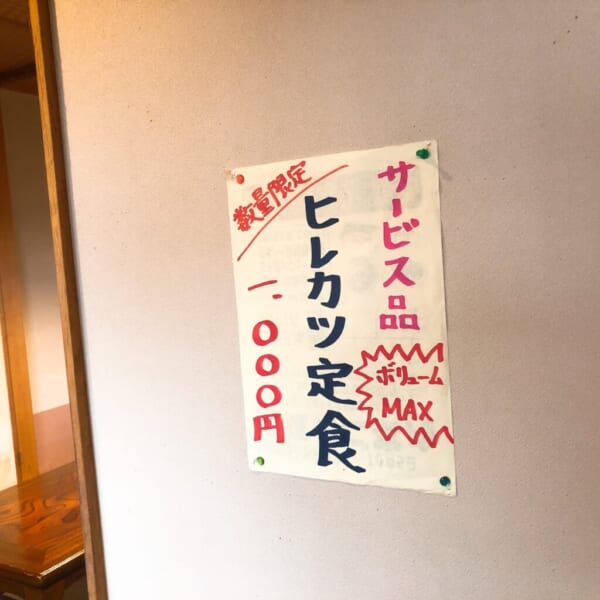 サービス品
ボリューム
MAX
ヒレカツ定食
数量限定
一、000円